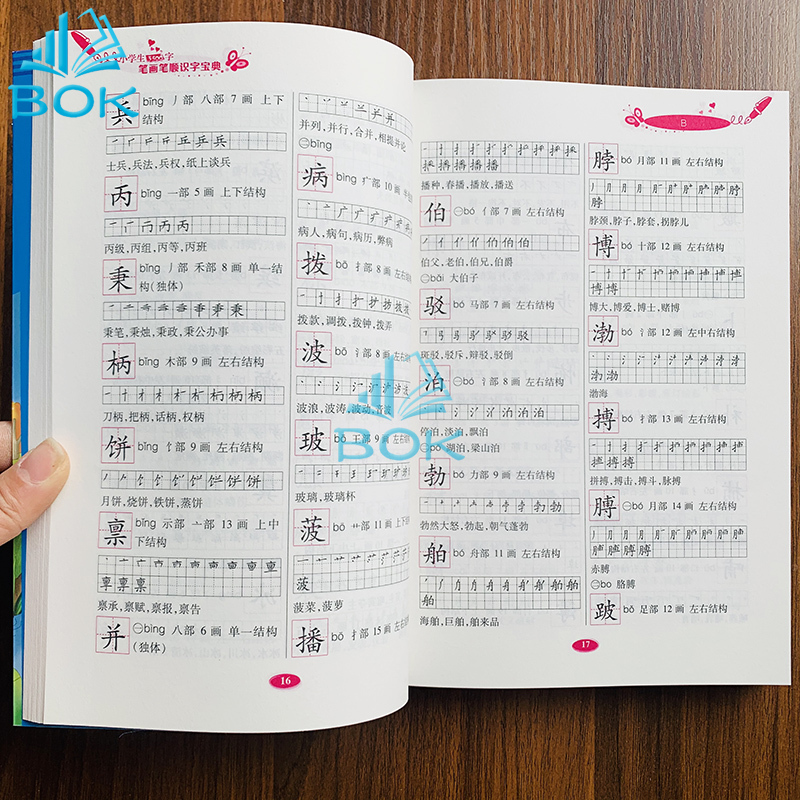 BOK
小学生
字
笔画笔顺识字宝典
兵 bīng 丿部 八部 7 画 上下
结构
士兵,兵法,兵权,纸上谈兵
丙 bǐng 一部 5 画 上下结构
丙级,丙组,丙等,丙班
秉 bǐng 丿部 禾部 8 画 单一结
构(独体)
秉笔,秉烛,秉政,秉公办事
柄 bǐng 木部 9 画 左右结构
刀柄,把柄,话柄,权柄
饼 bǐng 饣部 9 画 左右结构
月饼,烧饼,铁饼,蒸饼
禀 bǐng 示部 亠部 13 画 上中
下结构
禀承,禀赋,禀报,禀告
并 ㊀bìng 八部 6 画 单一结构
(独体)
并列,并行,合并,相提并论
㊁bīng
病 bìng 疒部 10 画
病人,病句,病历,弊病
拨 bō 扌部 8 画 左右
拨款,调拨,拨钟,拨弄
波 bō 氵部 8 画 左右
波浪,波涛,波动,音波
玻 bō 王部 9 画 左右
玻璃,玻璃杯
菠 bō 艹部 11 画 上下
菠菜,菠萝
播 bō 扌部 15 画 左右
16
B
播种,春播,播放,播送
伯 ㊀bó 亻部 7 画 左右结构
伯父,老伯,伯兄,伯爵
㊁bǎi 大伯子
驳 bó 马部 7 画 左右结构
斑驳,驳斥,辩驳,驳倒
泊 ㊀bó 氵部 8 画 左右结构
停泊,淡泊,飘泊
㊁pō 湖泊,梁山泊
勃 bó 力部 9 画 左右结构
勃然大怒,勃起,朝气蓬勃
舶 bó 舟部 11 画 左右结构
海舶,巨舶,舶来品
脖 bó 月部 11 画 左右结构
脖颈,脖子,脖套,拐脖儿
博 bó 十部 12 画 左右结构
博大,博爱,博士,赌博
渤 bó 氵部 12 画 左中右结构
渤海
搏 bó 扌部 13 画 左右结构
拼搏,搏击,搏斗,脉搏
膊 ㊀bó 月部 14 画 左右结构
赤膊
㊁bo 胳膊
跛 bǒ 足部 12 画 左右结构
17
BOK
BOK